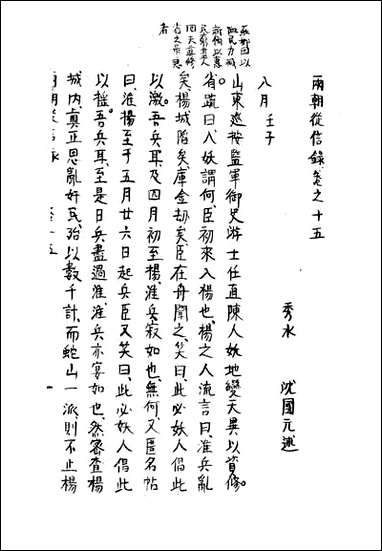 兩朝從信錄卷之十五
秀水 沈國元述
八月壬子
山東巡按監軍御史游士任直陳人妖地變天異以資修
省疏曰人妖謂何臣初來入楊也楊之人流言曰淮兵亂
矣楊城陷矣庫金劫矣臣在舟聞之笑曰此必妖人倡此
以激吾兵耳及四月初至楊淮兵寂如也無何又匿名帖
曰淮揚至于五月廿六日起兵臣又笑曰此必妖人倡此
以搖吾兵耳至是日兵盡過淮淮兵亦宴如也然審查楊
城內真正思亂奸民殆以數千計而蛇山一派則不止楊